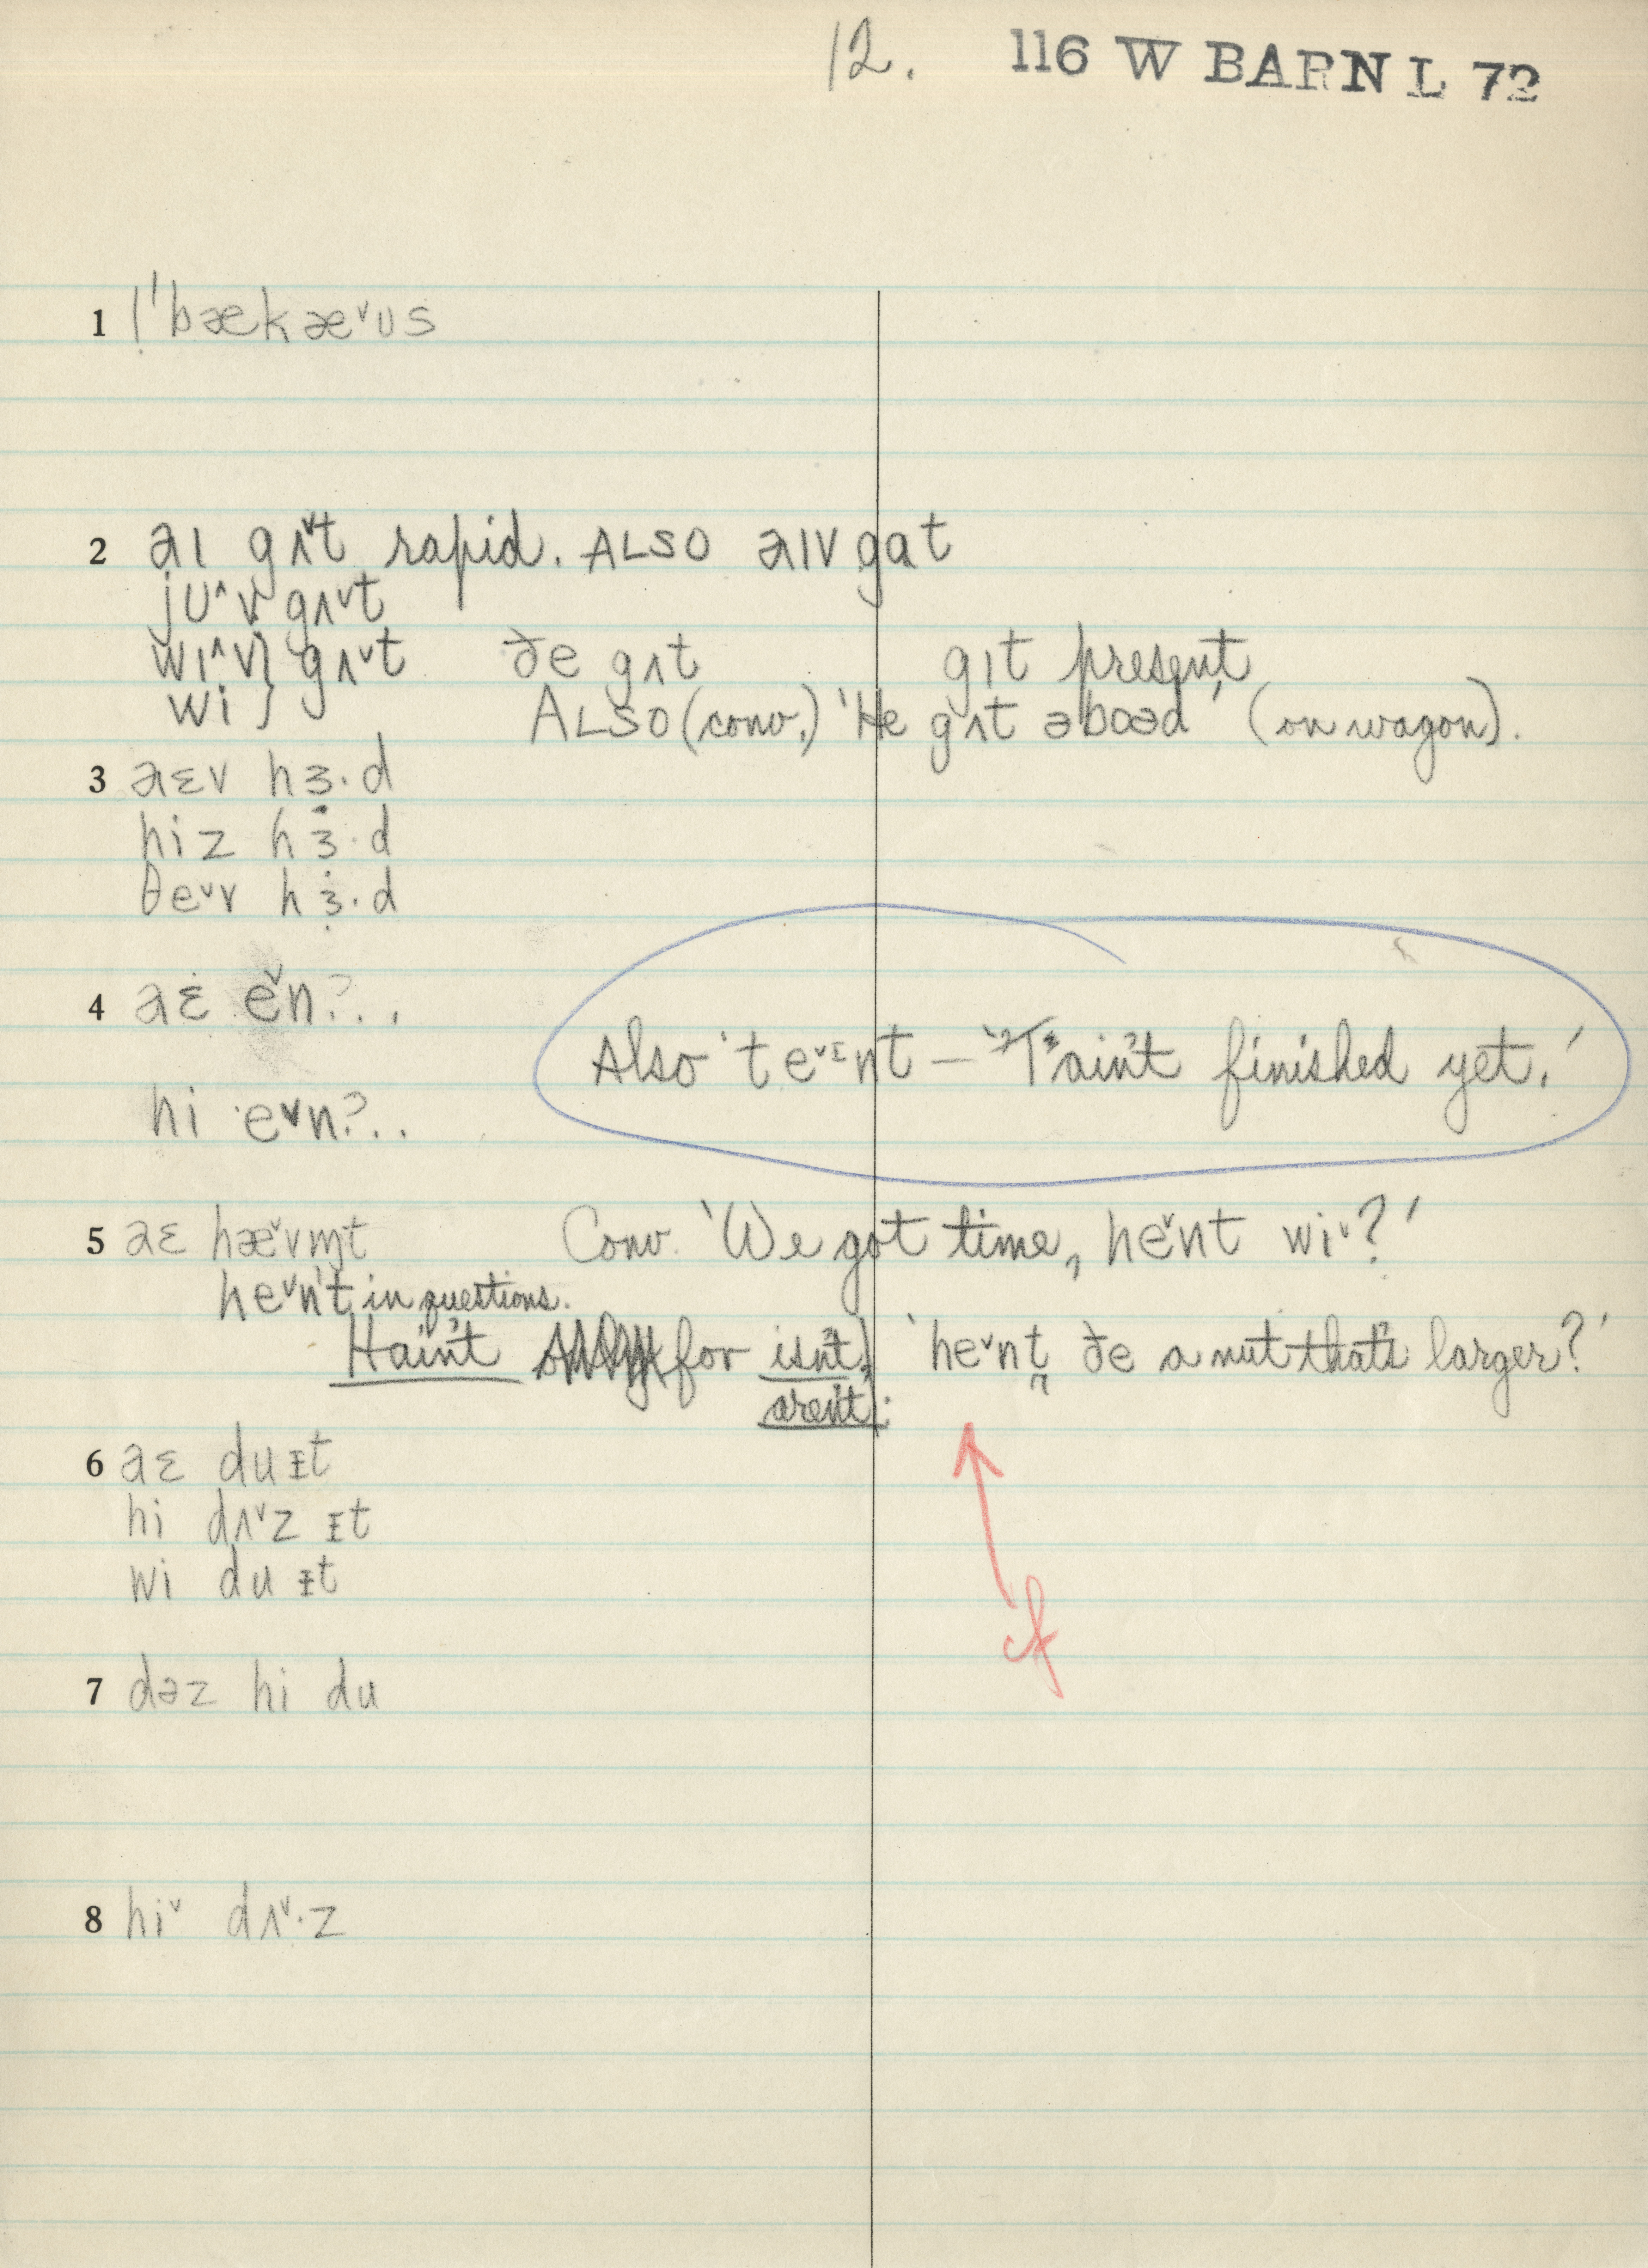 12. 116 W BARN L 72
1 | ˈbækæ˅ʊs
2 aɪ gʌ˅t rapid. ALSO aɪv gɑt
jʊ˄v gʌ˅t
wɪ˄v} gʌ˅t ðe gʌt gɪt present
wi } ALSO (conv.) 'He gʌt əboəd' (on wagon).
3 aɛv hɜ·d
hiz hɜ·d
θe˅v hɜ·d
4 aɛ e˅n?..
Also 'te˅ɪnt – 'T'ain't finished yet.'
hi e˅n?..
5 aɛ hæ˅vm̩t Conv. 'We got time, he˅nt wi˅?'
he˅n't in questions.
Hain't for isn't, 'he˅nt ðe a nut that's larger?'
aren't:
cf
6 aɛ du ɪt
hi dʌ˅z ɪt
wi du ɪt
7 dəz hi du
8 hi˅ dʌ˅·z